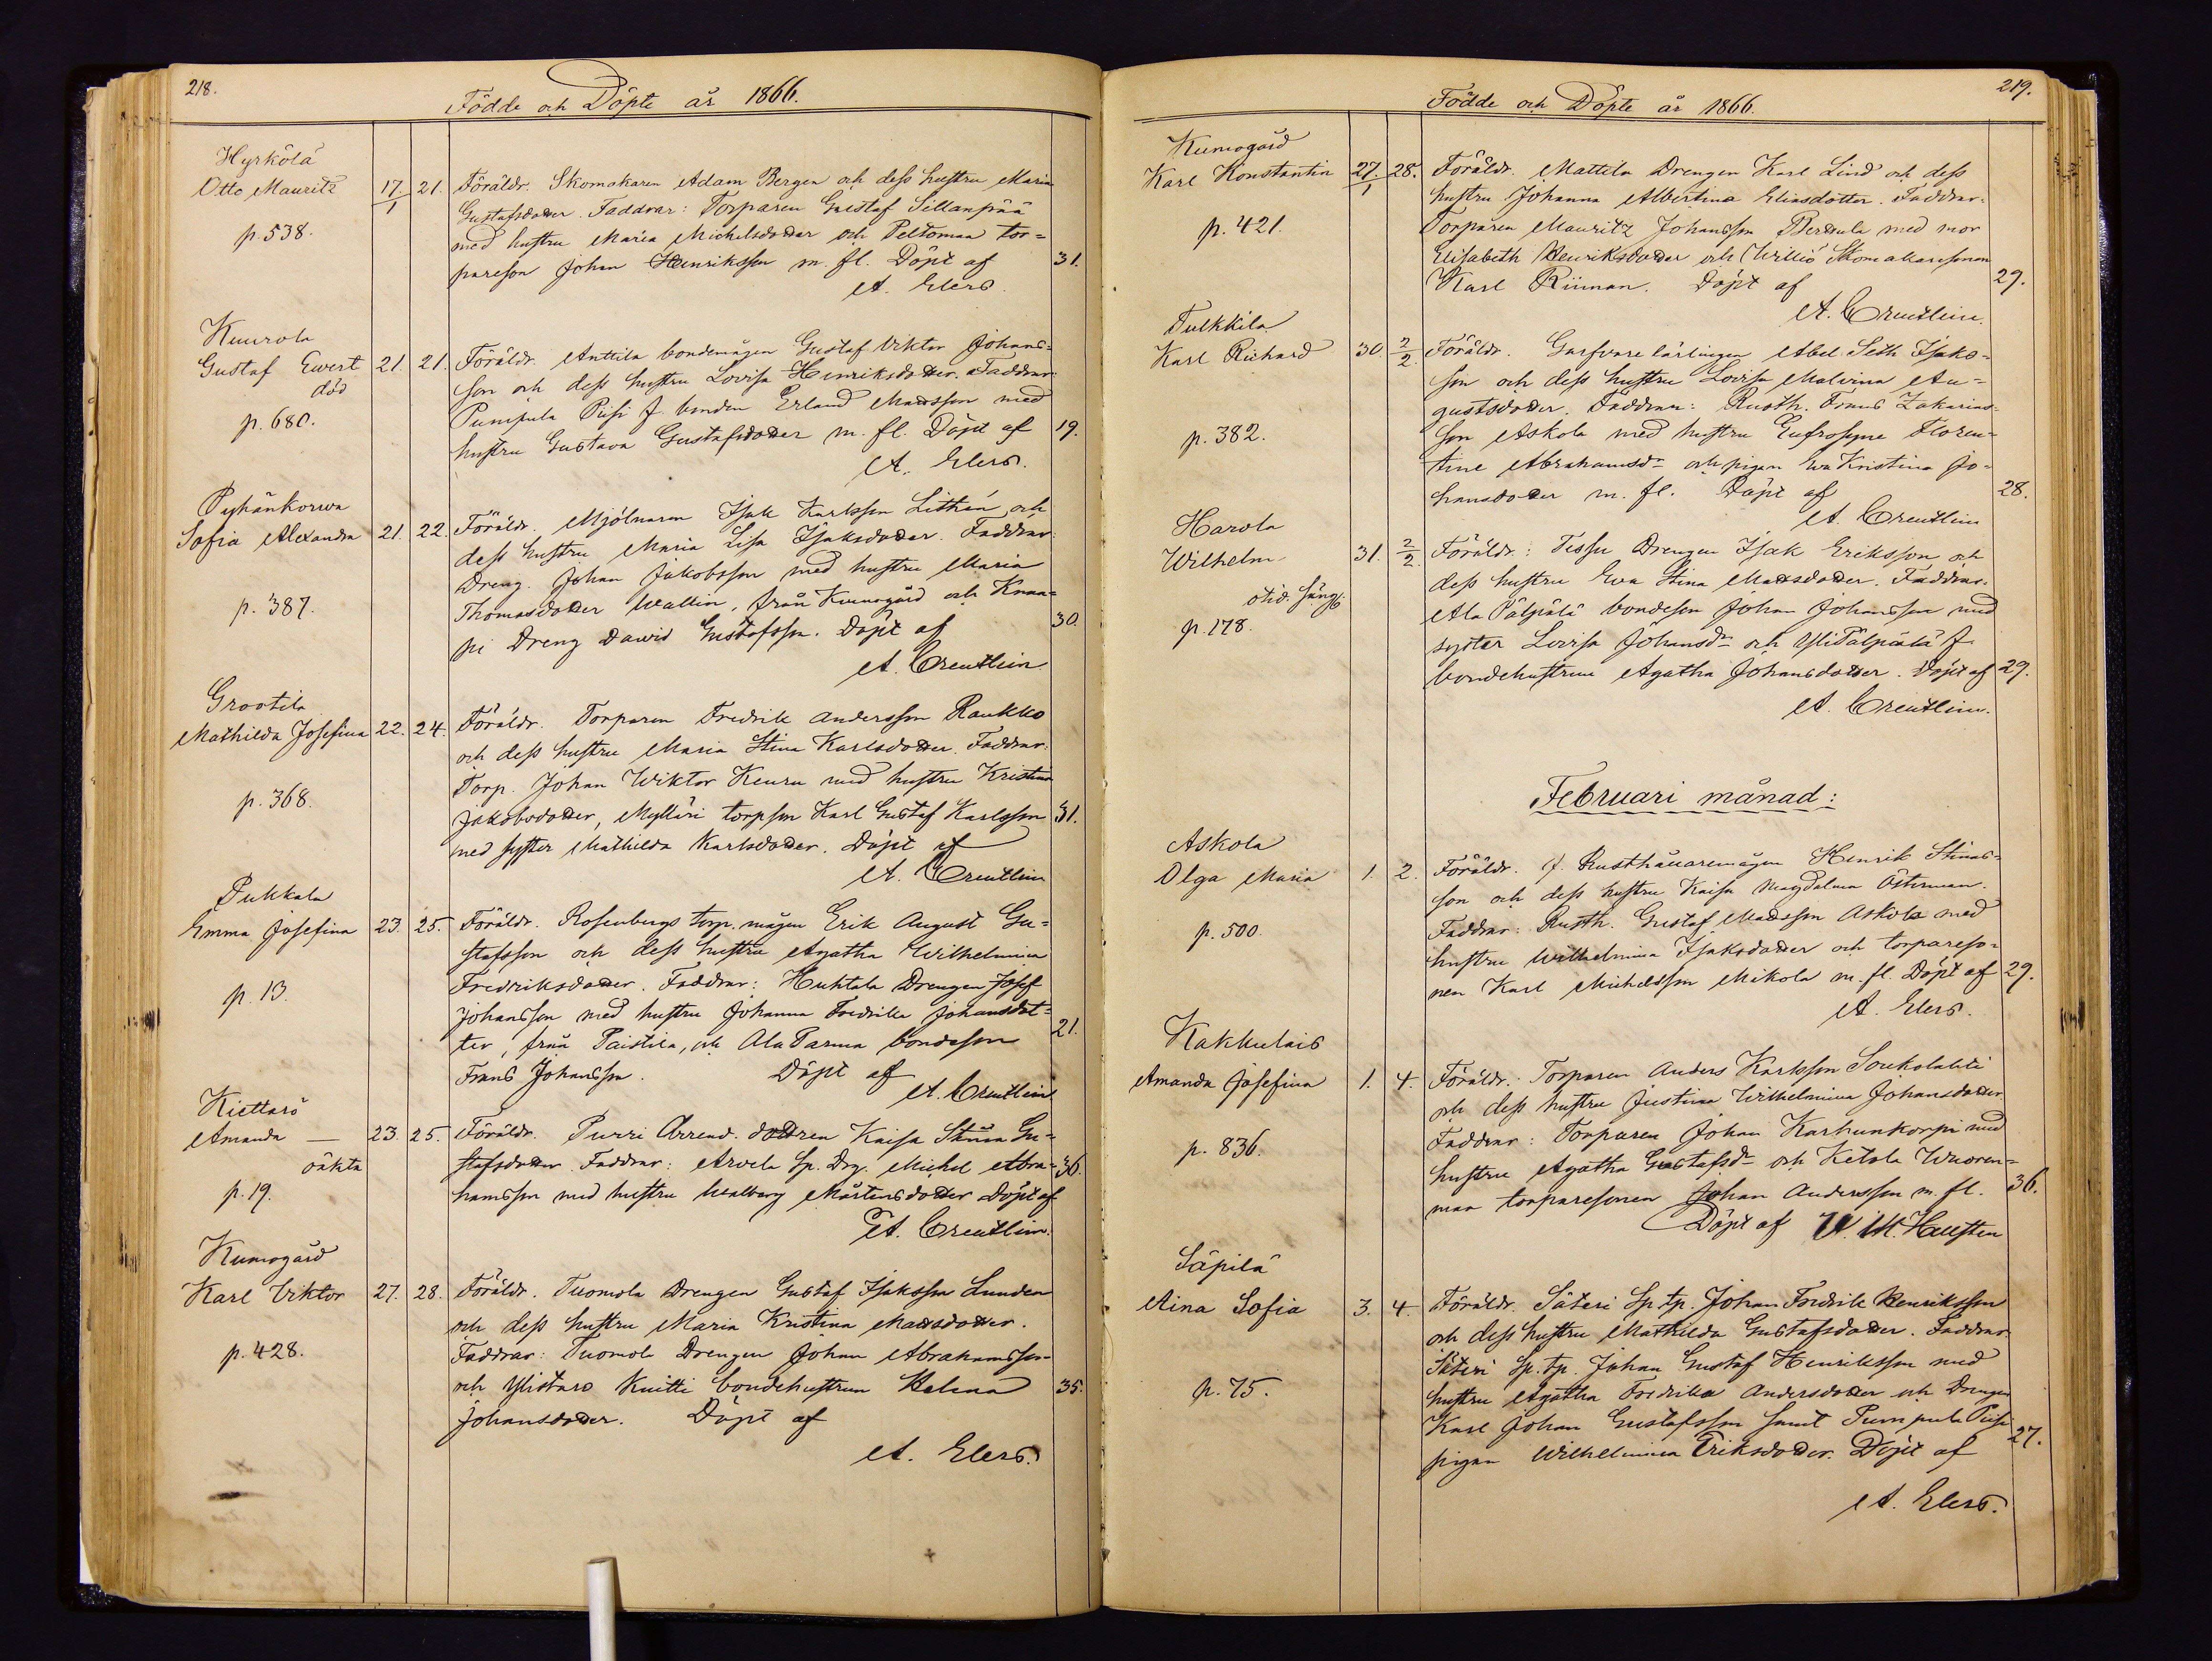 218.
Födde och Döpte år 1866.
Hyrkölä
Otto Mauritz 17/1 21. Föräldr. Skomakaren Adam Bergen och dess hustru Maria
Gustafsdotter. Faddrar: Torparen Gustaf Sillanpää
p. 538. med hustru Maria Michelsdotter och Peltomaa tor=
pareson Johan Henriksson m. fl. Döpt af 31.
A. Elers.
Kuurola
Gustaf Ewert 21. 21. Föräldr. Anttila bondemågen Gustaf Viktor Johans=
död son och dess hustru Lovisa Henriksdotter. Faddrar
p. 680. Pumpula Piisi f. bonden Erland Matsson med
hustru Gustava Gustafsdotter m. fl. Döpt af 19.
A. Elers.
Pyhänkorwa
Sofia Alexandra 21. 22. Föräldr. Mjölnaren Isak Karlsson Lithén och
dess hustru Maria Lisa Isaksdotter. Faddrar:
Dreng. Johan Jakobsson med hustru Maria
p. 387. Thomasdotter Wallin, från Kumogård och Knaa=
pi Dreng Dawid Gustafsson. Döpt af 30.
A. Creutlein
Grootila
Mathilda Josefina 22. 24. Föräldr. Torparen Fredrik Andersson Raukko
och dess hustru Maria Stina Karlsdotter. Faddrar.
Torp. Johan Wiktor Keuru med hustru Kristina
p. 368. Jakobsdotter, Mylläri torpson Karl Gustaf Karlsson 31.
med syster Mathilda Karlsdotter. Döpt af
A. Creutlein
Pukkala
Emma Josefina 23. 25. Föräldr. Rosenbergs torp. mågen Erik August Gu=
stafsson och dess hustru Agatha Wilhelmina
p. 13. Fredriksdotter. Faddrar: Huhtala Drengen Josef
Johansson med hustru Johanna Fredrika Johansdot=
ter, från Paistila, och Ala Parma bondeson 21.
Frans Johansson. Döpt af
A. Creutlein
Kiettarö
Amanda — 23. 25. Föräldr. Purri Arrend. dottren Kaisa Stina Gu=
oäkta stafsdotter. Faddrar: Arvela Sp. Drg. Michel Abra= 36.
p. 19. hamsson med hustru Walborg Mårtensdotter Döpt af
A. Creutlein.
Kumogård
Karl Viktor 27. 28. Föräldr. Tuomola Drengen Gustaf Isaksson Lunden
och dess hustru Maria Kristina Matsdotter.
p. 428. Faddrar: Tuomola Drengen Johan Abrahamsson
och Ylistaro Knitti bondehustrun Helena 35.
Johansdotter. Döpt af
A. Elers.
219.
Födde och Döpte år 1866.
Kumogård
Karl Konstantin 27./1 28. Föräldr. Mattila Drengen Karl Lind och dess
hustru Johanna Albertina Eliasdotter. Faddrar.
p. 421. Torparen Mauritz Johansson Perttula med mor
Elisabeth Henriksdotter och Williö Skomakaresonen
Karl Riiman. Döpt af 29.
A. Creutlein.
Tulkkila
Karl Richard 30. 2/2. Föräldr. Garfvare lärlingen Abel Seth Isaks=
son och dess hustru Lovisa Malvina Au=
gustsdotter. Faddrar: Rusth. Frans Zakarias=
p. 382. son Askola med hustru Eufrosyne Floren=
tine Abrahamsdr och pigan Eva Kristina Jo=
hansdotter m. fl. Döpt af 28.
A. Creutlein
Harola
Wilhelm 31. 2/2. Föräldr.: Tissu Drengen Isak Eriksson och
dess hustru Eva Stina Matsdotter. Faddrar.
otid. säng. Ala Pälpälä bondeson Johan Johansson med
p. 178. syster Lovisa Johansdr och Yli Pälpälä f.
bondehustrun Agatha Johansdotter. Döpt af 29.
A. Creutlein.
Februari månad:
Askola
Olga Maria 1. 2. Föräldr. f. Rusthållaremågen Henrik Stinas=
son och dess hustru Kaisa Magdalena Österman.
p. 500. Faddrar: Rusth. Gustaf Matsson Askola med
hustru Wilhelmina Isaksdotter och torpareso=
nen Karl Michelsson Mikola m. fl. Döpt af 29.
A. Elers.
Kakkulais
Amanda Josefina 1. 4. Föräldr. Torparen Anders Karlsson Soukolahti
och dess hustru Justina Wilhelmina Johansdotter
Faddrar: Torparen Johan Karhunkorpi med
p. 836. hustru Agatha Gustafsdr och Ketola Wuoren=
maa torparesonen Johan Andersson m. fl. 36.
Döpt af K. M. Hausten
Säpilä
Aina Sofia 3. 4. Föräldr. Säteri Sp. tp. Johan Fredrik Henriksson
och dess hustru Mathilda Gustafsdotter. Faddrar.
Säteri Sp. tp. Johan Gustaf Henriksson med
p. 75. hustru Agatha Fredrika Andersdotter och Drengen
Karl Johan Gustafsson samt Pumpula Piisi
pigan Wilhelmina Eriksdotter. Döpt af 27.
A. Elers.